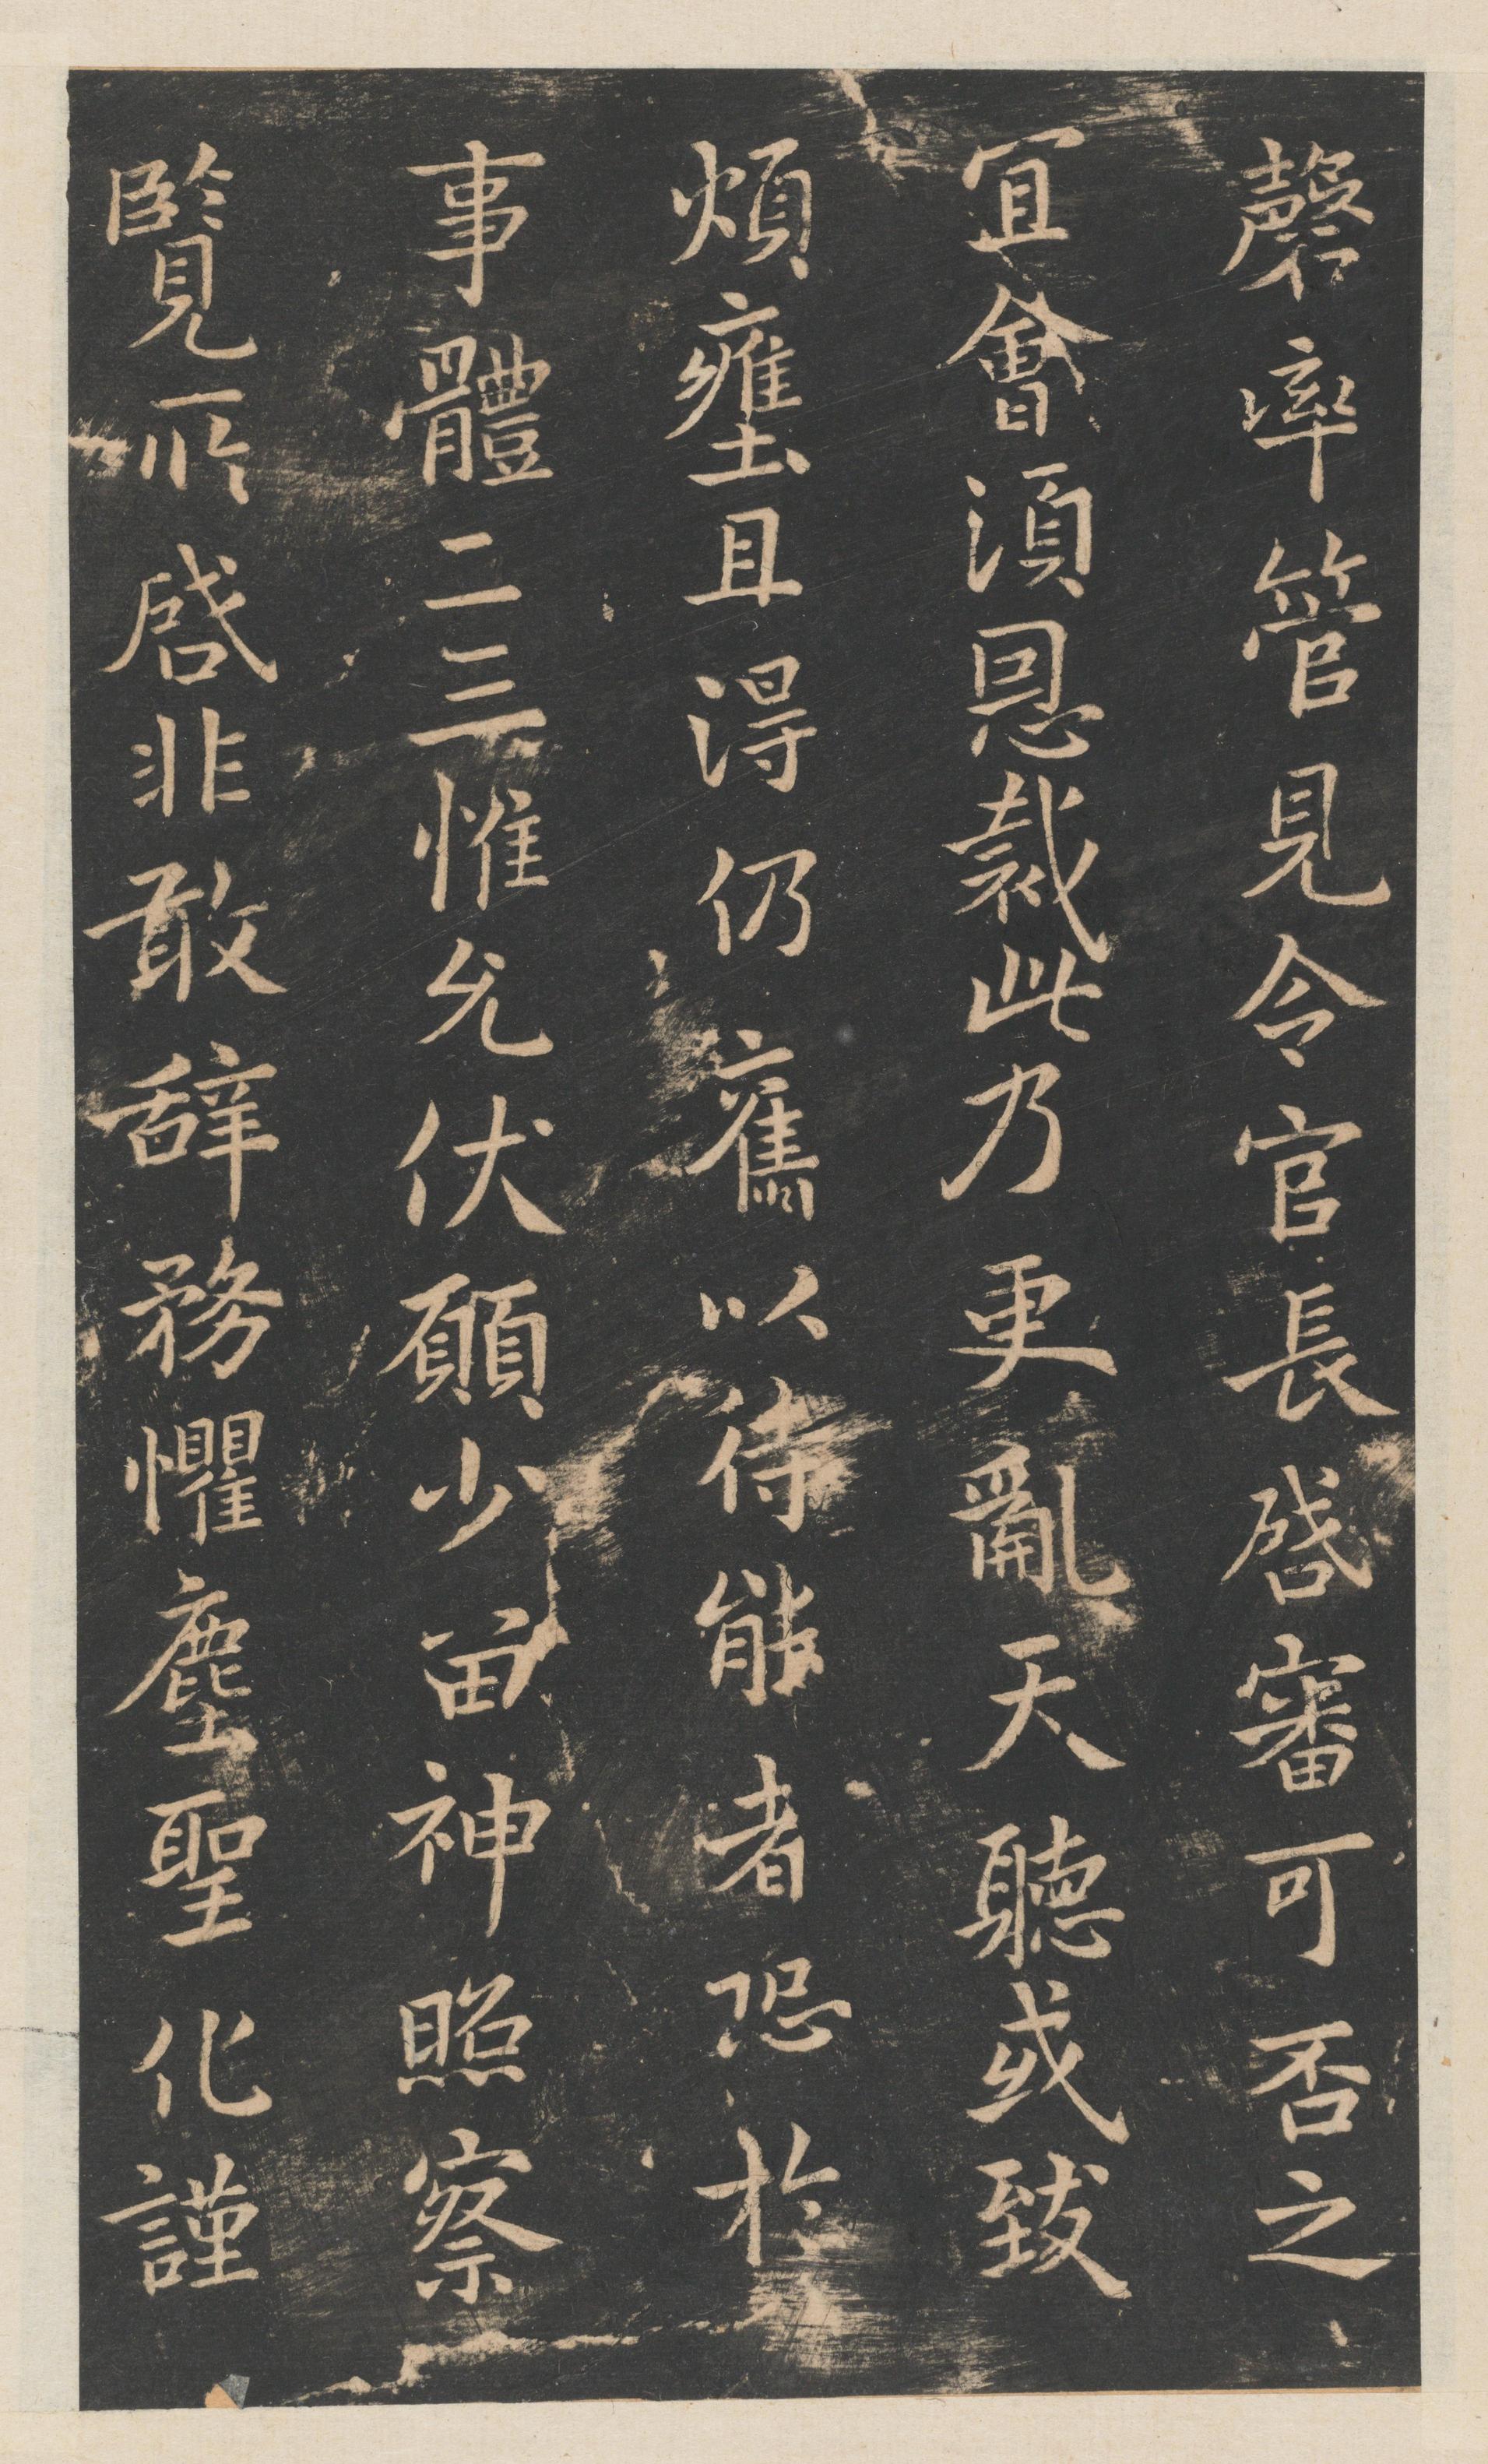 罄率管見令官長啓審可否之
宜會須恩裁此乃更亂天聽或致
煩壅且得仍舊以待能者恐於
事體二三惟允伏願少留神照察
覽所啓非敢辭務懼塵聖化謹